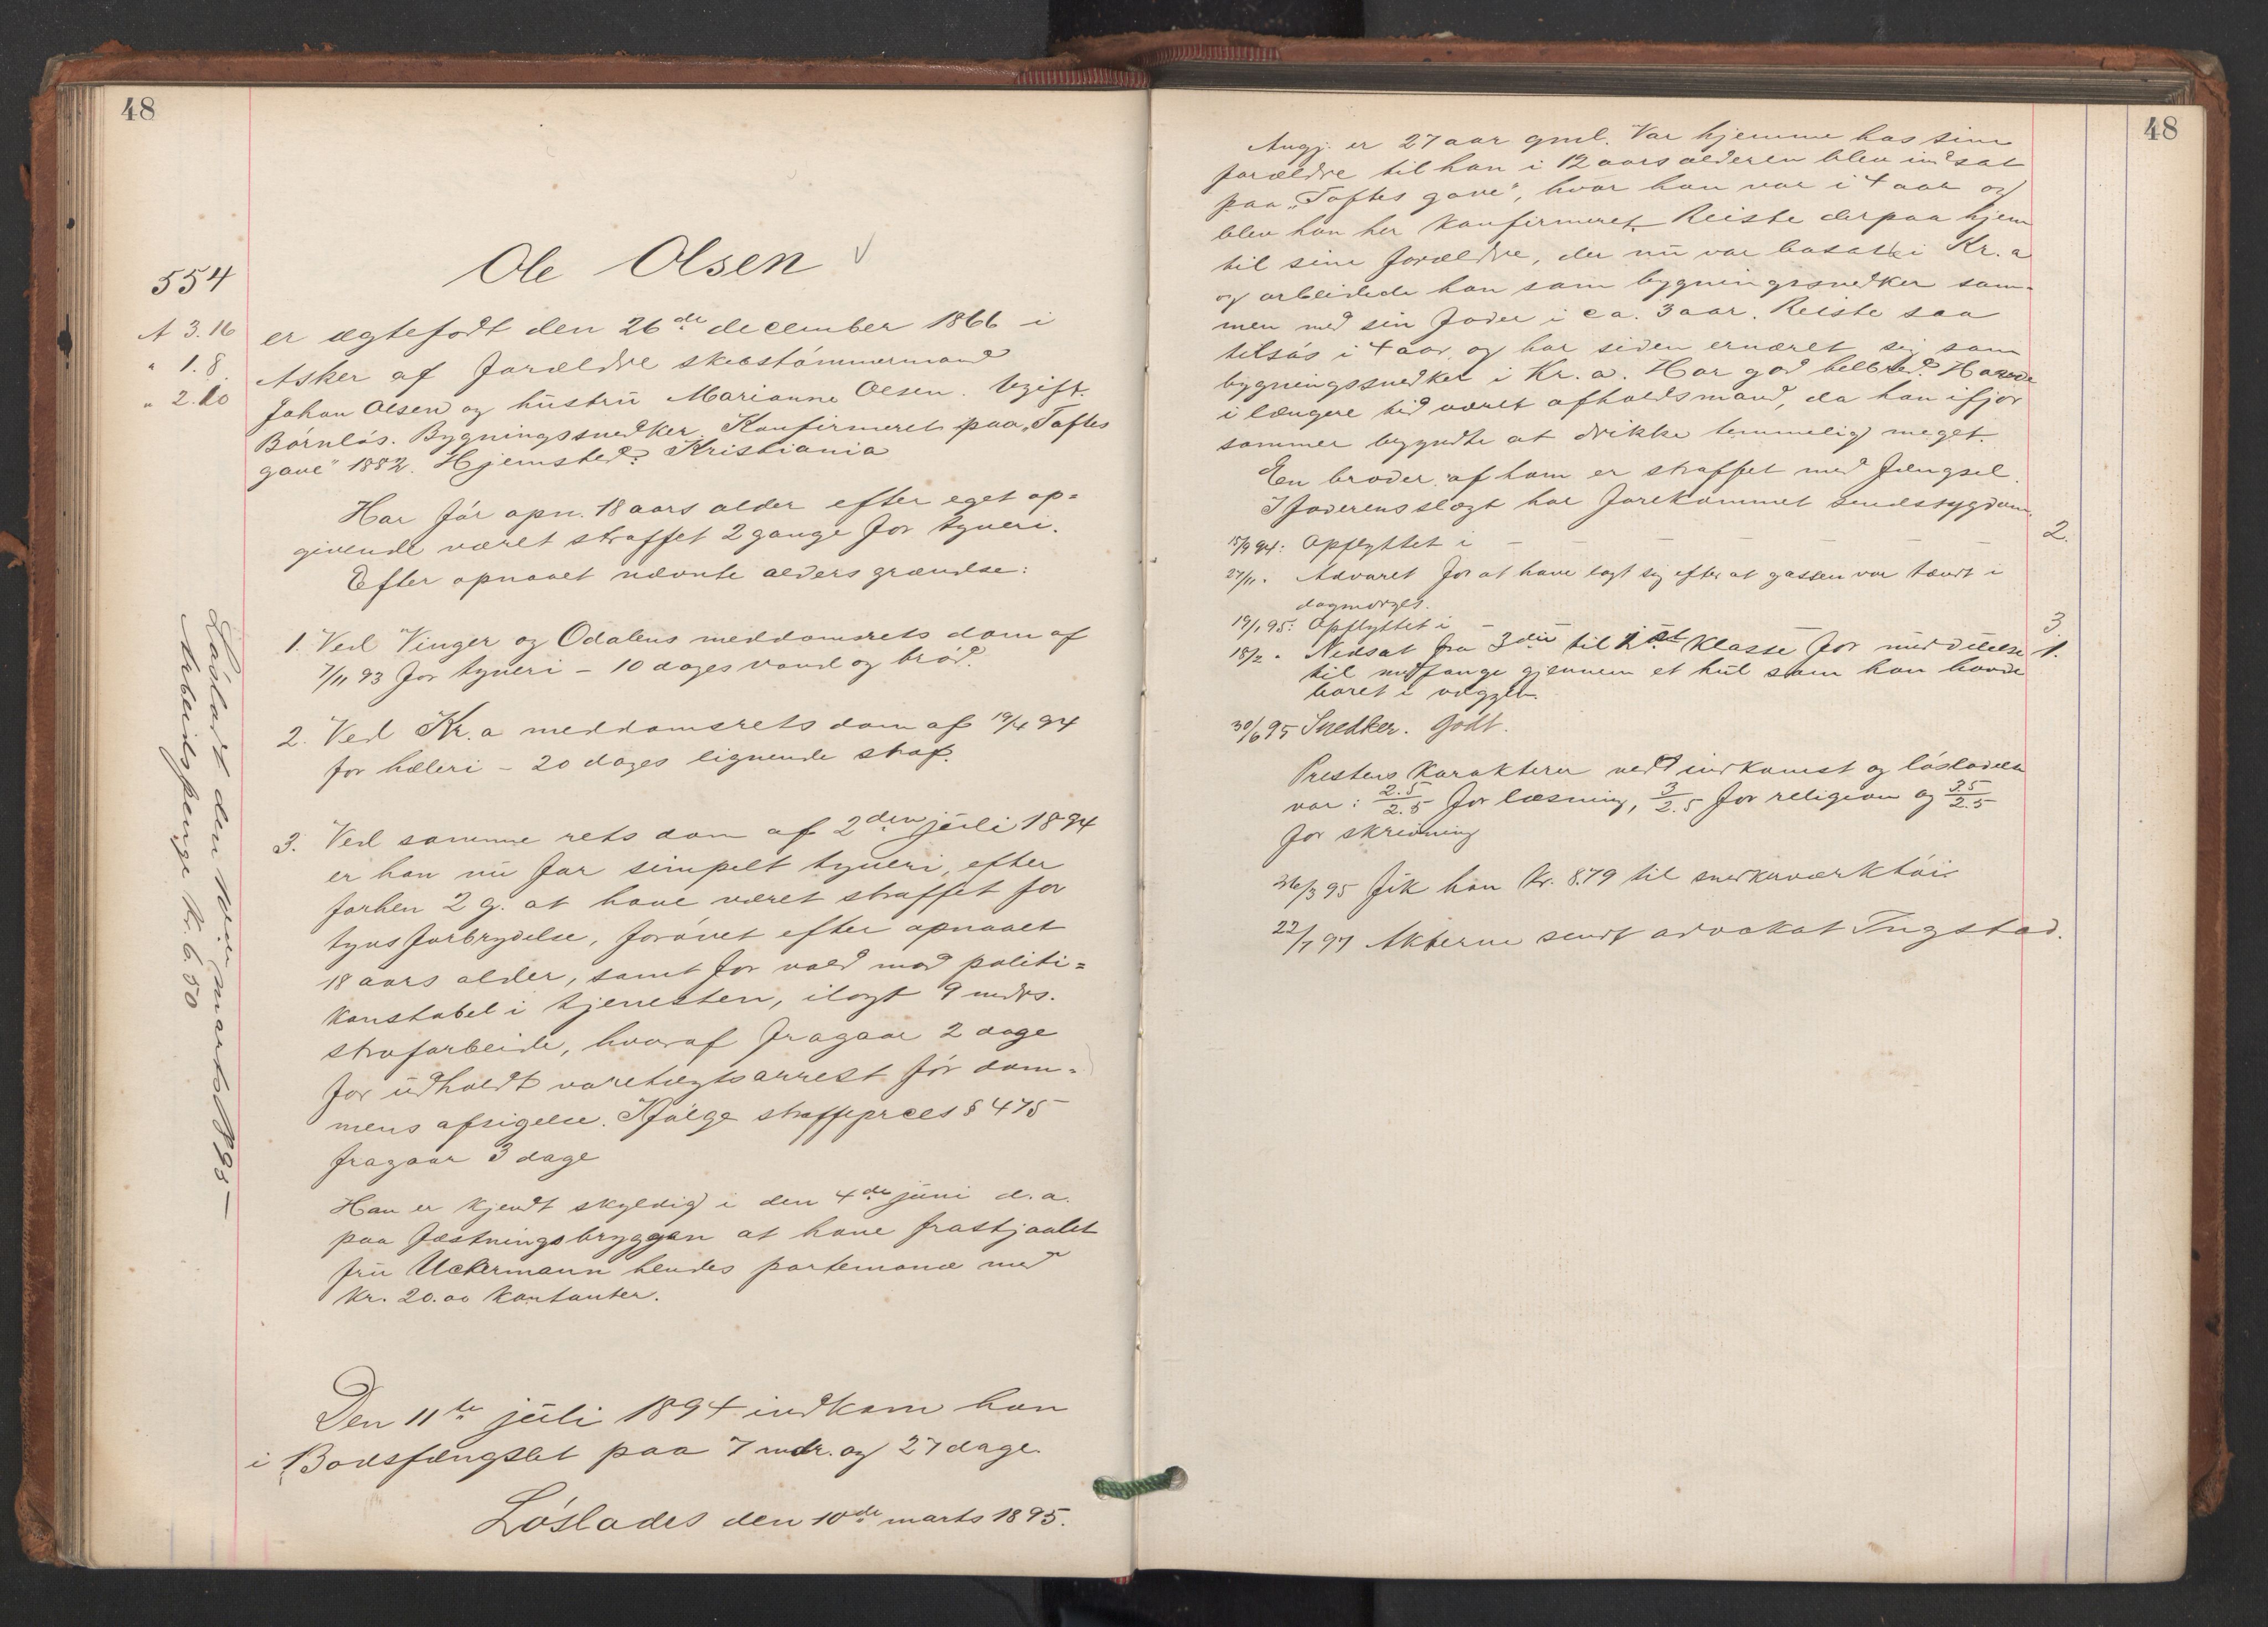 48
Ole Olsen
554
A 3.16
" 1.8.
" 2.10
er ægtefødt den 26de december 1866 i
Asker af forældre skibstømmermand
Johan Olsen og hustru Marianne Olsen. Ugift.
Børnløs. Bygningssnedker. Konfirmeret paa „Toftes
gave" 1882. Hjemsted: Kristiania
Har før opn. 18 aars alder efter eget op=
givende været straffet 2 gange for tyveri.
Efter opnaaet nævnte aldersgrændse:
1. Ved Vinger og Odalens meddomsrets dom af
7/11 93 for tyveri – 10 dages vand og brød.
2. Ved Kr.a meddomsrets dom af 19/4 94
for hæleri – 20 dages lignende straf.
3. Ved samme rets dom af 2den juli 1894
er han nu for simpelt tyveri, efter
forhen 2 g. at have været straffet for
tyvsforbrydelse, forøvet efter opnaaet
18 aars alder, samt for vold mod politi=
konstabel i tjenesten, ilagt 9 mdrs.
strafarbeide, hvoraf fragaar 2 dage
for udholdt varetægtsarrest før dom=
mens afsigelse. Ifølge straffeprces § 475
fragaar 3 dage
Han er kjendt skyldig i den 4de juni d.a.
paa fæstningsbryggen at have frastjaalet
fru Uckermann hendes portemonæ med
kr. 20.00 kontanter.
Den 11te juli 1894 indkom han
i Bodsfængslet paa 7 mdr. og 27 dage.
Løslades den 10de marts 1895.
Løsladt den 10de marts 1895 –
Arbeidspenge kr. 6.50
48
Angj. er 27 aar gml. Var hjemme hos sine
forældre til han i 12 aars alderen blev indsat
paa „Toftes gave", hvor han var i 4 aar og
blev han her konfirmeret. Reiste derpaa hjem
til sine forældre, der nu var bosatte i Kr.a
og arbeidede han som bygningssnedker sam=
men med sin fader i ca. 3 aar. Reiste saa
tilsøs i 4 aar, og har siden ernæret sig som
bygningssnedker i Kr.a. Har god helbred. Havde
i længere tid været afholdsmand, da han ifjor
sommer begyndte at drikke temmelig meget.
En broder af ham er straffet med fængsel.
I faderens slægt har forekommet sindssygdom.
15/9 94: Opflyttet i – – – – – – – 2.
27/11 " Advaret for at have lagt sig efter at gassen var tændt i
dagmorges.
19/1 95: Opflyttet i – – 3.
18/2 " Nedsat fra 3die til 1st klasse for meddelelse 1.
til medfange gjennem et hul som han havde
boret i væggen.
30/6 95 Snedker. Godt.
Prestens karakterer ved indkomst og løsladelse
var: 2.5/2.5 for læsning, 3/2.5 for religion og 3.5/2.5
for skrivning
26/3 95 fik han kr. 8.79 til snedkerværktøi.
22/7 97 Akterne sendt advokat Tngstad.